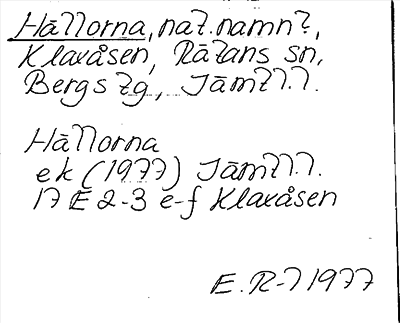 Hållorna, nat. namn?,
Klaxåsen, Rätans sn,
Bergs tg, Jämtl. l.
Hållorna
ek (1977) Jämtl. l.
17 E 2-3 e-f Klaxåsen
E. R-l 1977